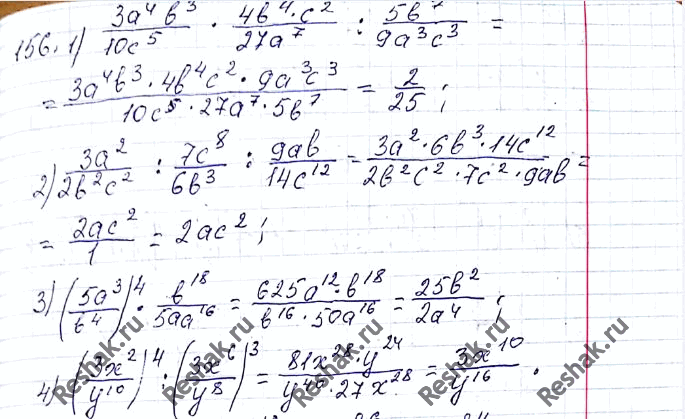 156. 1) 3a⁴b³/10c⁵ · 4b⁴·c²/27a⁷ : 5b⁷/9a³c³ =
= 3a⁴b³·4b⁴c²·9a³c³/10c⁵·27a⁷·5b⁷ = 2/25 ;
2) 3a²/2b²c² : 7c⁸/6b³ : 9ab/14c¹² = 3a²·6b³·14c¹²/2b²c²·7c²·9ab =
= 2ac²/1 = 2ac² ;
3) (5a³/b⁴)⁴ · b¹⁸/50a¹⁶ = 625a¹²·b¹⁸/b¹⁶·50a¹⁶ = 25b²/2a⁴ ;
4) (3x²/y¹⁰)⁴ : (3x⁶/y⁸)³ = 81x²⁸·y²⁴/y⁴⁰·27x²⁸ = 3x¹⁰/y¹⁶ .
Reshak.ru Reshak.ru Reshak.ru Reshak.ru Reshak.ru